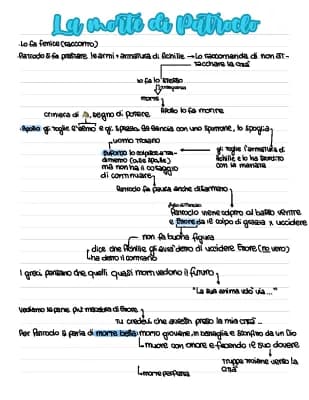 La morte di Patroclo
Lo fa fenice (racconto)
Patroclo si fa prestare le armi + armatura di Achille → lo raccomanda di non at-
taccare la città
lo fa lo stesso
conseguenza
morte
Apollo lo fa morire
criniera di segno di potere
Apollo gli toglie l'elmo e gli spezza la lancia con uno spuntone, lo spoglia
uomo troiano
Euforbo lo colpisce a tra-
dimento (alle spalle)
ma non ha il coraggio
di continuare
gli toglie l'armatura di
Achille e lo ha stordito
con la manata
Patroclo fa paura anche disarmato
Patroclo viene colpito al basso ventre
e Ettore da il colpo di grazia x uccidere
non fa buona figura
dice che Achille gli aveva detto di uccidere Ettore (no vero)
ha detto il contrario
I greci pensano che quelli quasi morti vedono il futuro
"La sua anima volò via ..."
Vediamo la parte più maestosa di Ettore
tu credevi che avresti preso la mia città ...
Per Patroclo si parla di morte bella: morto giovane, in battaglia e sconfitto da un Dio
muore con onore e facendo il suo dovere
truppe troiane verso la
città
morte perfetta